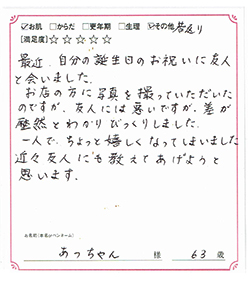 ☑お肌 □からだ □更年期 □生理 ☑その他 若返り
[満足度]☆☆☆☆☆
最近、自分の誕生日のお祝いに友人
と会いました。
お店の方に写真を撮っていただいた
のですが、友人には悪いですが、差が
歴然とわかりびっくりしました。
一人で、ちょっと嬉しくなってしまいました
近々友人にも教えてあげようと
思います。
お名前(本名orペンネーム)
あっちゃん 様 63歳